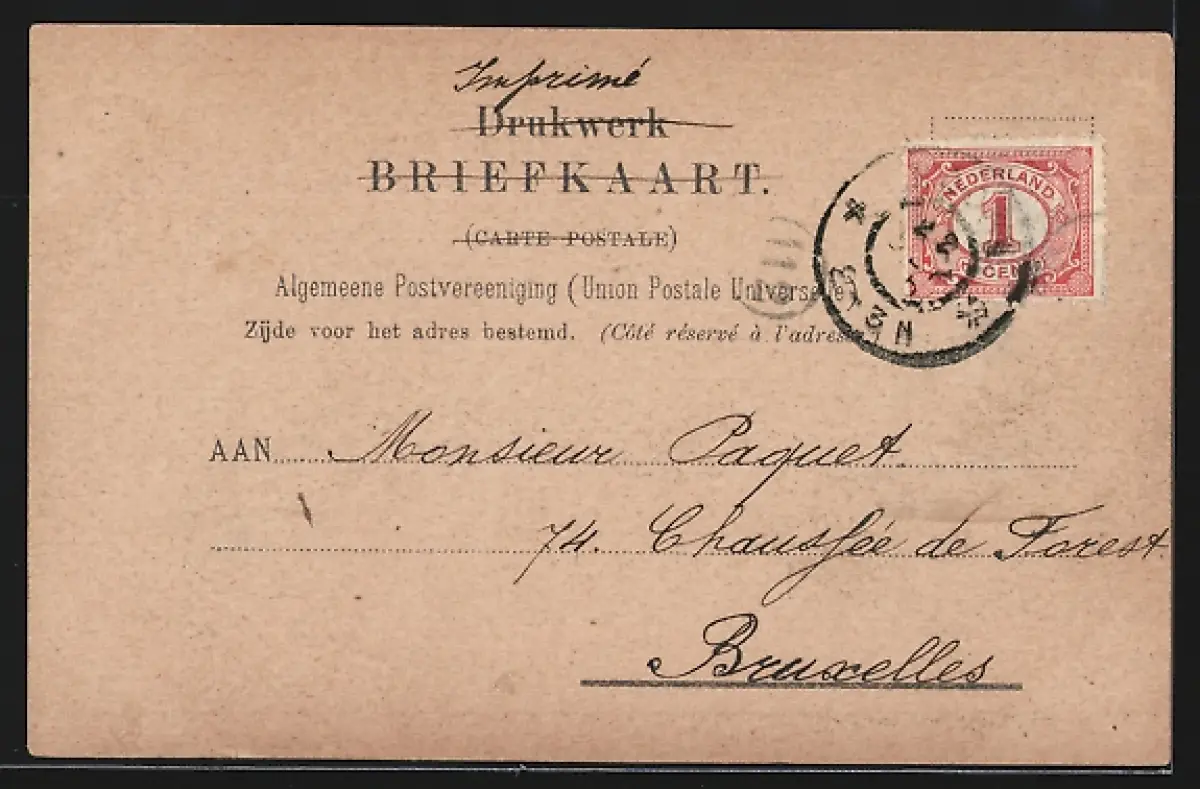 Imprimé
Drukwerk
BRIEFKAART.
(CARTE POSTALE)
NEDERLAND
1
CENT
Algemeene Postvereeniging (Union Postale Universelle
Zijde voor het adres bestemd. (Côté réservé à l'adres
AAN Monsieur Paquet.
74. Chaussée de Forest
Bruxelles